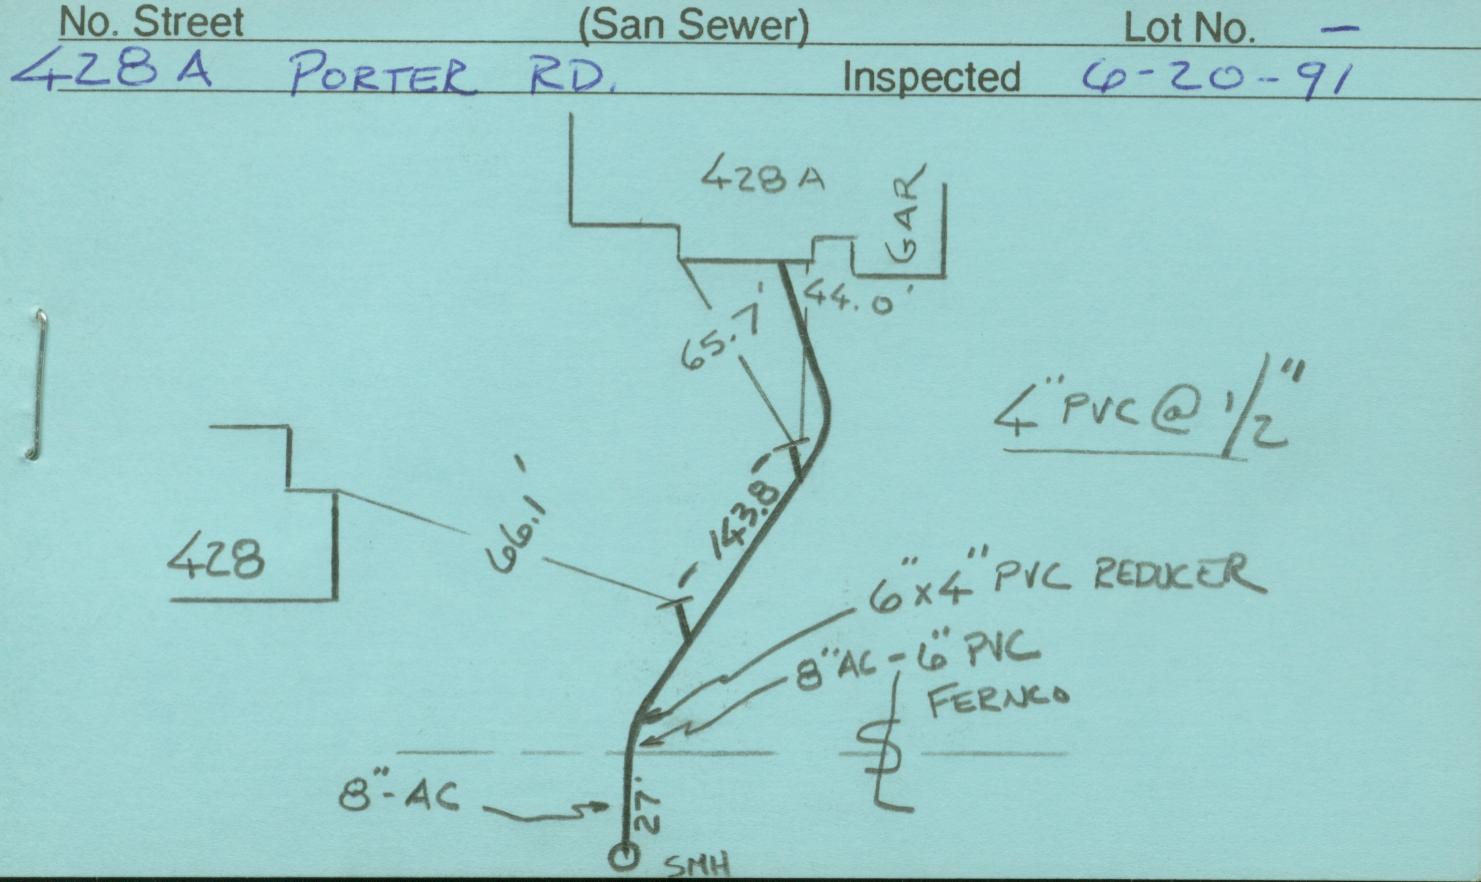 No. Street (San Sewer) Lot No. —
428 A PORTER RD. Inspected 6-20-91
428 A
GAR
44.0'
65.7'
4" PVC @ 1/2"
66.1'
143.8'
428
6"x4" PVC REDUCER
8"AC - 6" PVC
FERNCO
8"-AC
27'
SMH